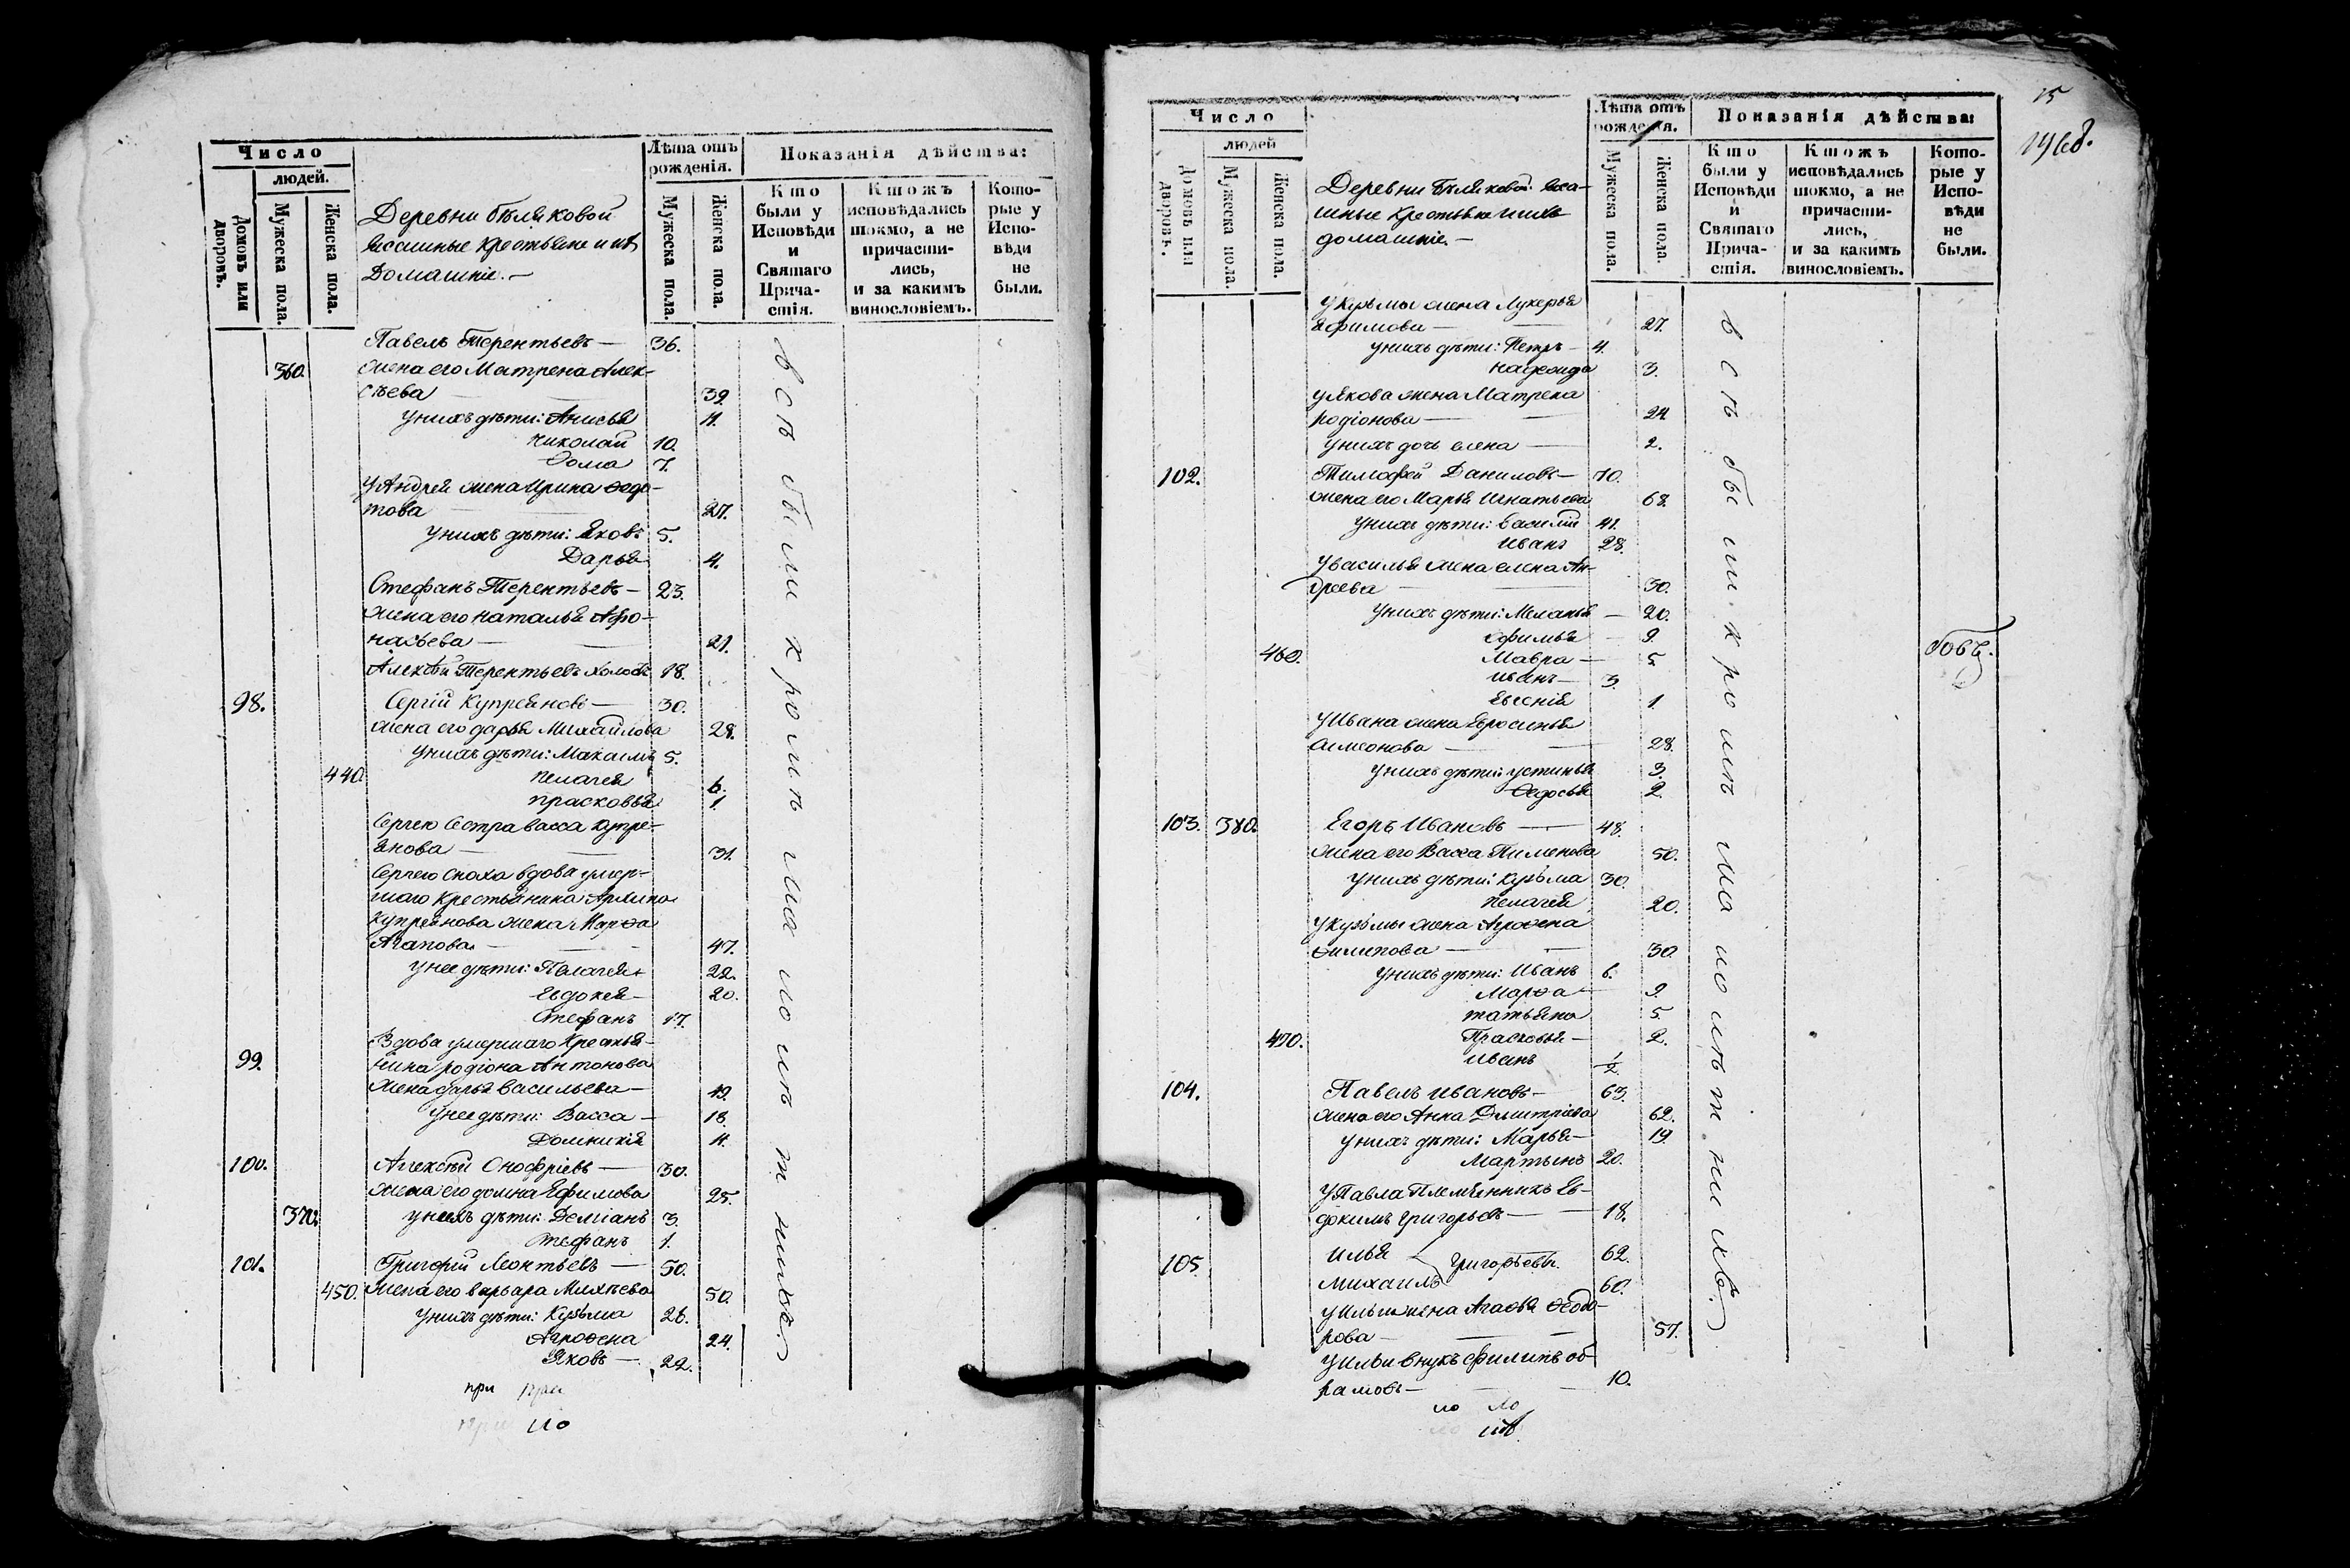 Число
людей.
Домовъ или дворовъ.
Мужеска пола.
Женска пола.
Деревни Бѣляковой
ясашные крестьяне и ихъ
Домашніе. —
Лѣта отъ рожденія.
Мужеска пола.
Женска пола.
Показанія дѣйства:
Кто были у Исповѣди и Святаго Прича-стія.
Ктожъ исповѣдались токмо, а не причасти-лись, и за какимъ винословіемъ.
Кото-рые у Испо-вѣди не были.
Павелъ Терентьевъ — 36.
360. жена его Матрена Алек-
сѣева — 39.
у нихъ дѣти: Анисья 11.
Николай 10.
Ѳома 7.
у Андрея жена Ирина Ѳедо-
това — 27.
у нихъ дѣти: Яковъ 5.
Дарья 4.
Стефанъ Терентьевъ — 23.
жена его Наталья Афо-
насьева — 21.
Алексѣй Терентьевъ холостъ 18.
98. Сергій Купреяновъ — 30.
жена его Дарья Михайлова 28.
у нихъ дѣти: Максимъ 5.
440. Пелагея 6.
Прасковья 1.
Сергею сестра Васса Купре-
янова — 31.
Сергею сноха вдова умер-
шаго крестьянина Архипа
Купреянова жена Марѳа
Агапова — 47.
у нее дѣти: Пелагея 22.
Евдокея — 20.
Стефанъ 17.
Вдова умершаго крестья-
99. нина Родіона Антонова
жена Дарья Васильева — 49.
у нее дѣти: Васса — 18.
Домникія 11.
100. Алексѣй Онофріевъ — 30.
жена его Домна Ефимова 25.
370. у нихъ дѣти: Деміанъ 3.
Стефанъ 1.
101. Григорій Леонтьевъ — 50.
450. жена его Варвара Михѣева 50.
у нихъ дѣти: Кузьма 26.
Агрофена 24.
Яковъ — 22.
всѣ были кромѣ малолѣтнихъ
при при
ло
15
Число
людей
Домовъ или дворовъ.
Мужеска пола.
Женска пола.
Деревни Бѣляковой яса-
шные крестьяне и ихъ
домашніе. —
Лѣта отъ рожденія.
Мужеска пола.
Женска пола.
Показанія дѣйства:
Кто были у Исповѣди и Святаго Прича-стія.
Ктожъ исповѣдались токмо, а не причасти-лись, и за какимъ винословіемъ.
Кото-рые у Испо-вѣди не были.
у Кузьмы жена Лукерья
Ефимова — 27.
у нихъ дѣти: Петръ — 4.
Надежда 3.
у Якова жена Матрена
Родіонова — 24.
у нихъ дочь Елена — 2.
102. Тимофей Даниловъ — 70.
жена его Марья Игнатьева 68.
у нихъ дѣти: Василій 41.
Иванъ 28.
у Василья жена Елена Ан-
дреева — 30.
у нихъ дѣти: Меланья — 20.
Ефимья — 9.
460. Мавра — 5.
Иванъ — 3.
Евгенія 1.
у Ивана жена Евросинья
Симеонова — 28.
у нихъ дѣти: Устинья 3.
Ѳедосья 2.
103. 380. Егоръ Ивановъ — 48.
жена его Васса Пименова 50.
у нихъ дѣти: Кузьма 30.
Пелагея 20.
у Кузьмы жена Агрофена
Филипова — 30.
у нихъ дѣти: Иванъ 6.
Марѳа — 9.
Татьяна 5.
470. Прасковья — 2.
Иванъ 1/2.
104. Павелъ Ивановъ — 63.
жена его Анна Дмитріева 62.
у нихъ дѣти: Марья — 19.
Мартынъ 20.
у Павла племянникъ Ев-
докимъ Григорьевъ — 18.
105. Илья Григорьевы. 62.
Михаилъ 60.
у Ильи жена Агафья Ѳедо-
рова — 57.
у Ильи внукъ Филипъ Об-
рамовъ — 10.
всѣ были кромѣ малолѣтнихъ
ло ло